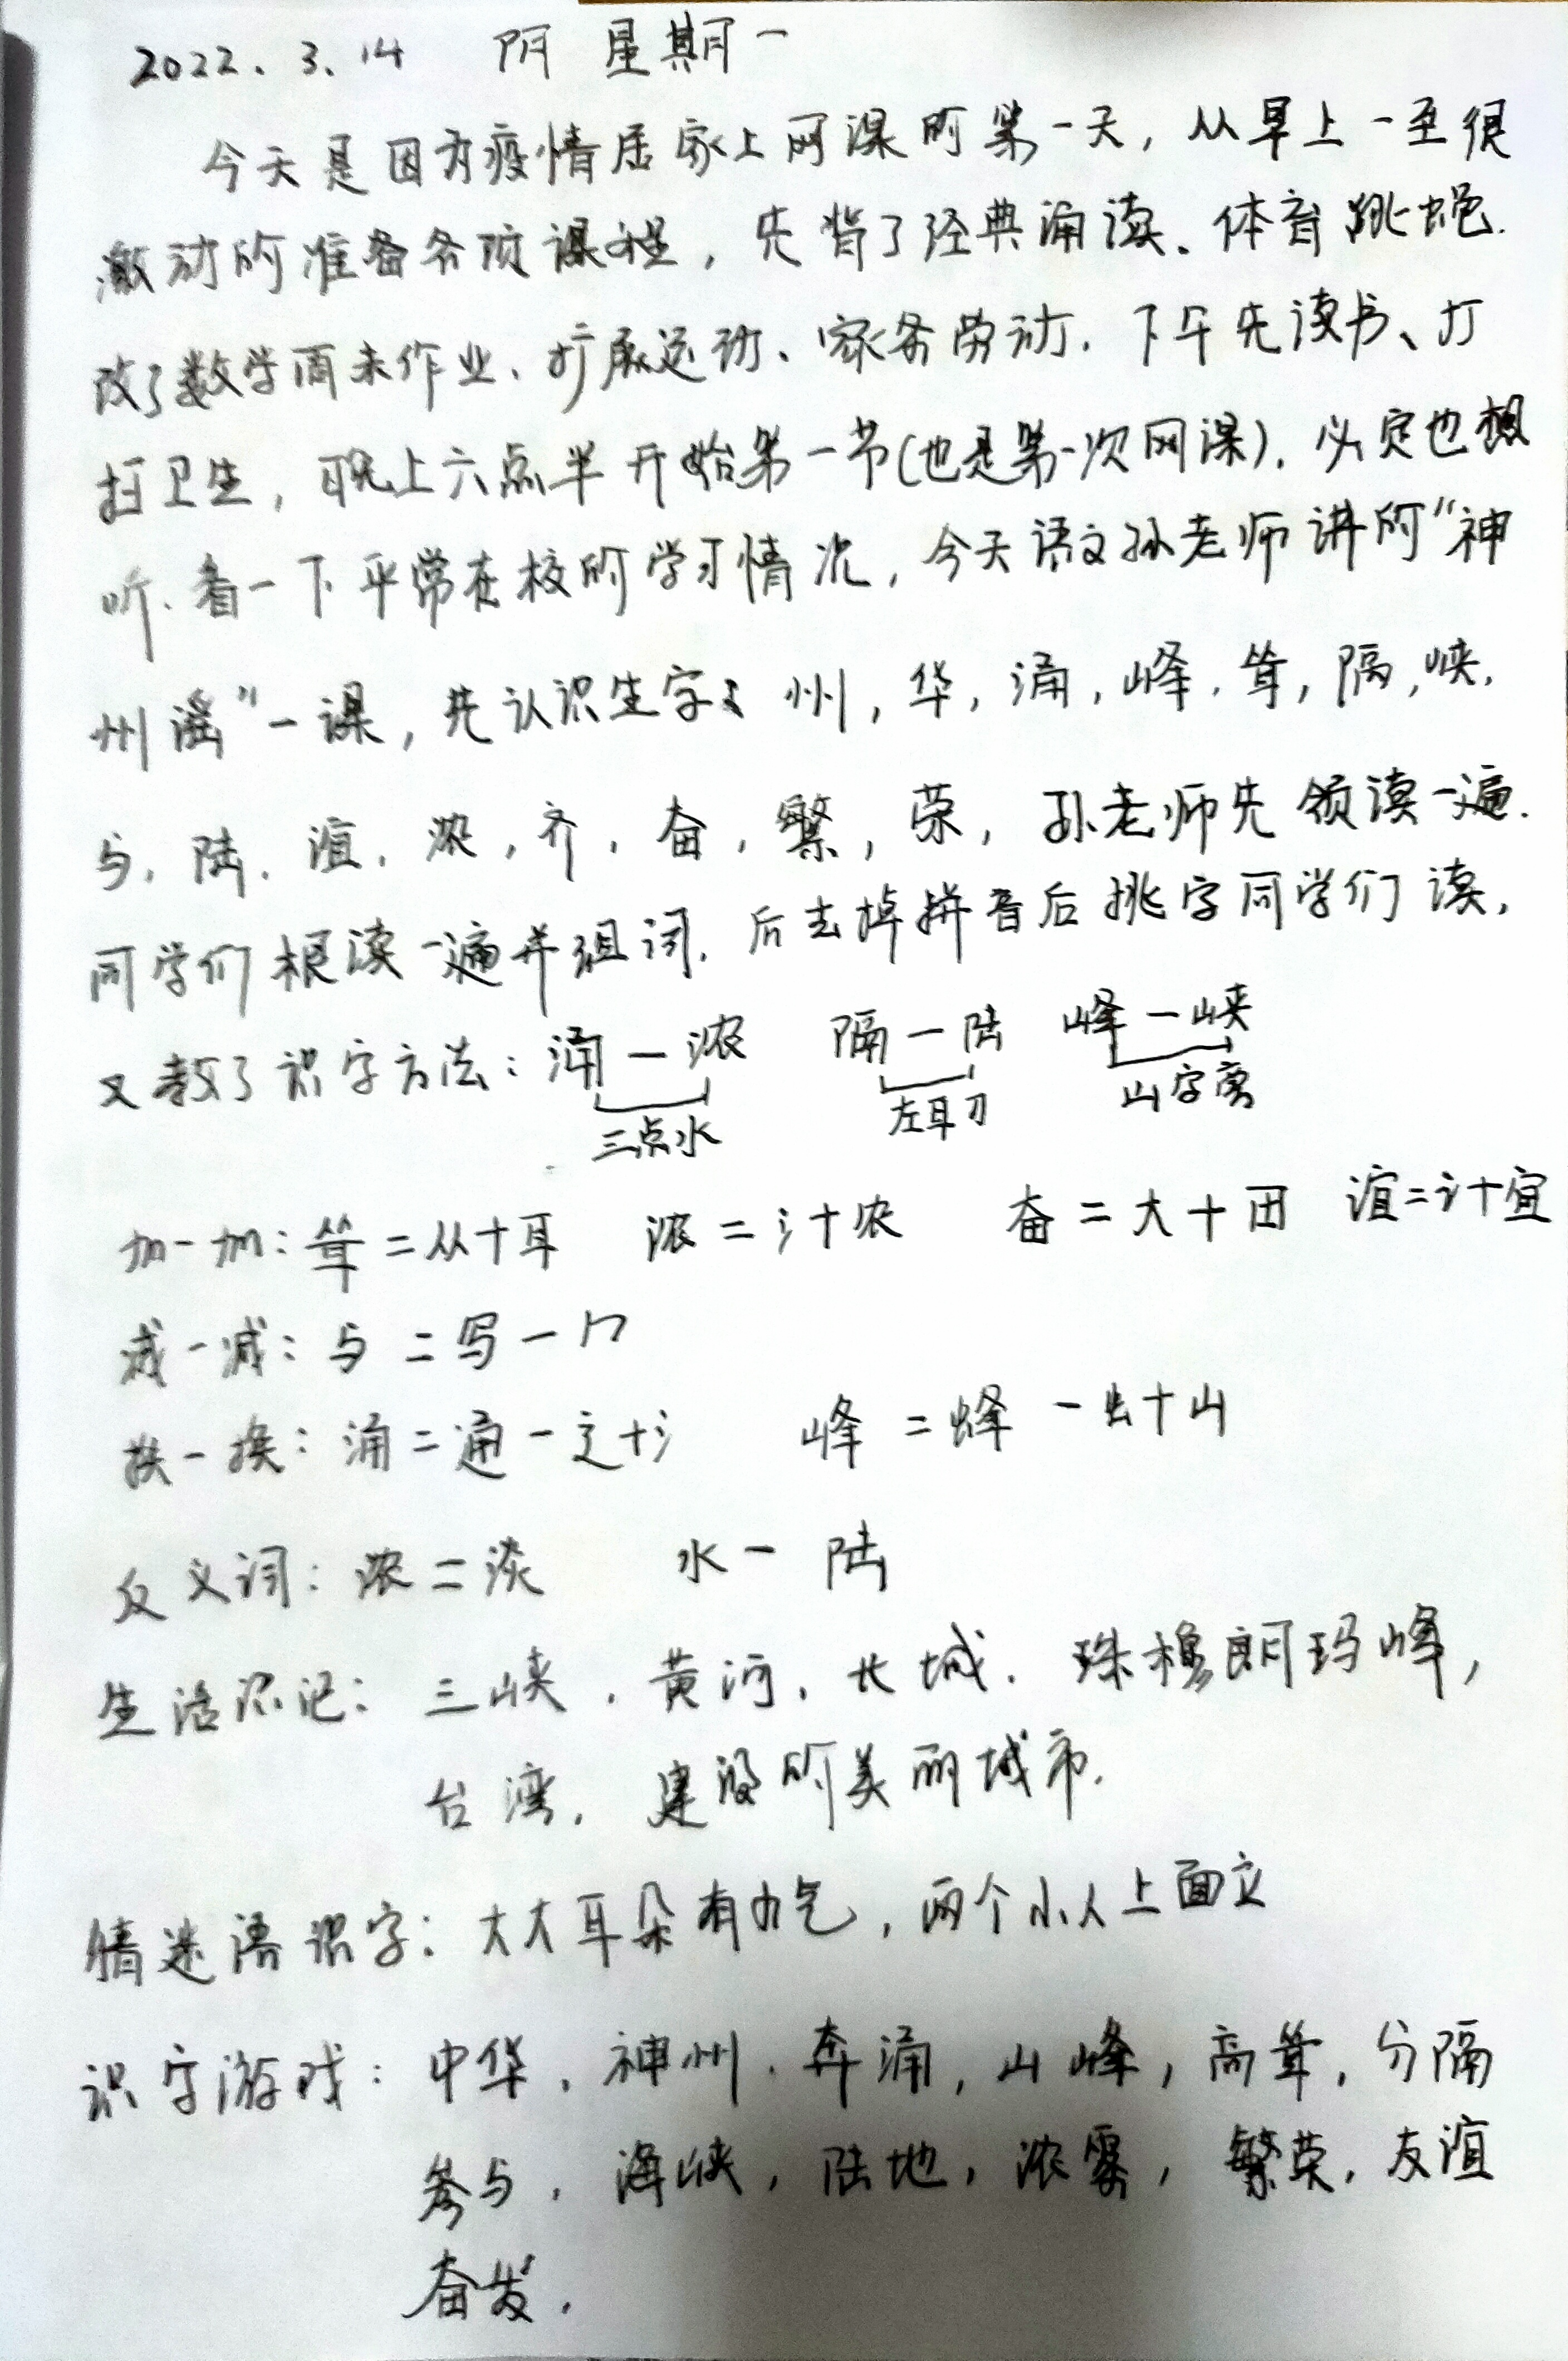 2022.3.14 阴 星期一
今天是因为疫情居家上网课的第一天,从早上一至很
激动的准备各项课程,先背了经典诵读、体育跳绳.
改了数学周末作业、扩展运动、家务劳动.下午先读书、打
扫卫生,晚上六点半开始第一节(也是第一次网课),必定也想
听.看一下平常在校的学习情况,今天语文孙老师讲的“神
州谣”一课,先认识生字: 州,华,涌,峰,耸,隔,峡.
与,陆,谊,浓,齐,奋,繁,荣,孙老师先领读一遍.
同学们根读一遍并组词.后去掉拼音后挑字同学们读,
又教了识字方法:涌一浓 隔一陆 峰一峡
三点水 左耳刀 山字旁
加一加:耸=从+耳 浓=氵+农 奋=大+田 谊=讠+宜
减一减:与=写一冖
换一换:涌=通一辶+氵 峰=蜂一虫+山
反义词:浓=淡 水一陆
生活识记:三峡.黄河.长城.珠穆朗玛峰,
台湾.建设的美丽城市.
猜迷语识字:大大耳朵有力气,两个小人上面立
识字游戏:中华.神州.奔涌,山峰,高耸.分隔
参与.海峡,陆地,浓雾,繁荣.友谊
奋发.